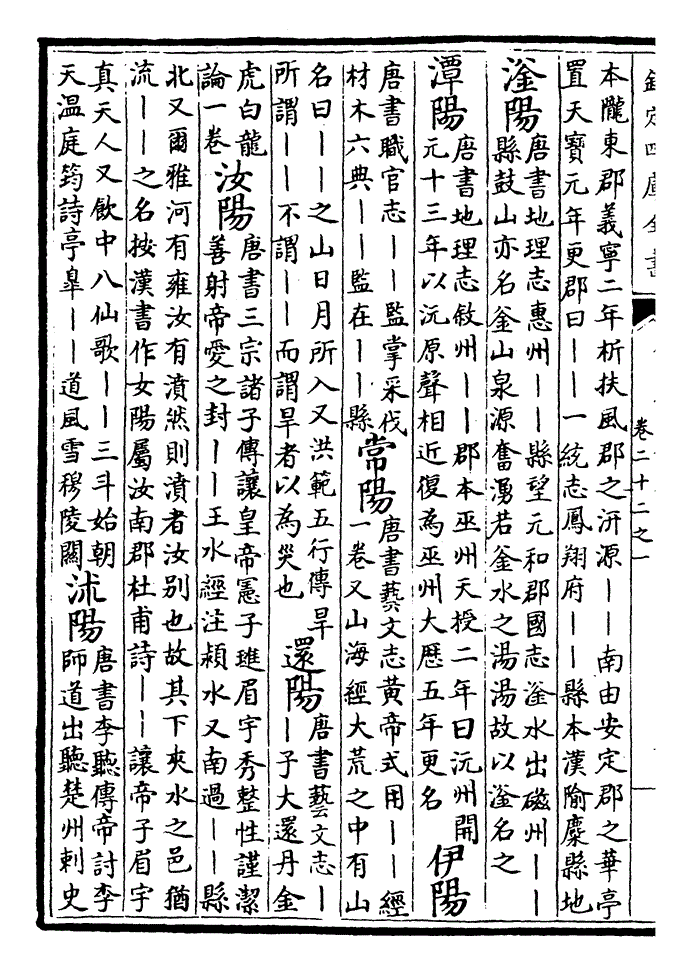 欽定四庫全書
卷二十二之一
本隴東郡義寧二年析扶風郡之汧源｜｜南由安定郡之華亭
置天寶元年更郡曰｜｜一統志鳳翔府｜｜縣本漢隃麋縣地
滏陽
唐書地理志惠州｜｜縣望元和郡國志滏水出磁州｜｜
縣鼓山亦名釜山泉源奮湧若釜水之湯湯故以滏名之
潭陽
唐書地理志敘州｜｜郡本巫州天授二年曰沅州開
元十三年以沅原聲相近復為巫州大歷五年更名
伊陽
唐書職官志｜｜監掌采伐
材木六典｜｜監在｜｜縣
常陽
唐書藝文志黄帝式用｜｜經
一卷又山海經大荒之中有山
名曰｜｜之山日月所入又洪範五行傳旱
所謂｜｜不謂｜｜而謂旱者以為災也
還陽
唐書藝文志｜
｜子大還丹金
虎白龍
論一卷
汝陽
唐書三宗諸子傳讓皇帝憲子璡眉宇秀整性謹潔
善射帝愛之封｜｜王水經注潁水又南過｜｜縣
北又爾雅河有雍汝有濆然則濆者汝别也故其下夾水之邑猶
流｜｜之名按漢書作女陽屬汝南郡杜甫詩｜｜讓帝子眉宇
真天人又飲中八仙歌｜｜三斗始朝
天温庭筠詩亭臯｜｜道風雪穆陵關
沭陽
唐書李聽傳帝討李
師道出聽楚州刺史